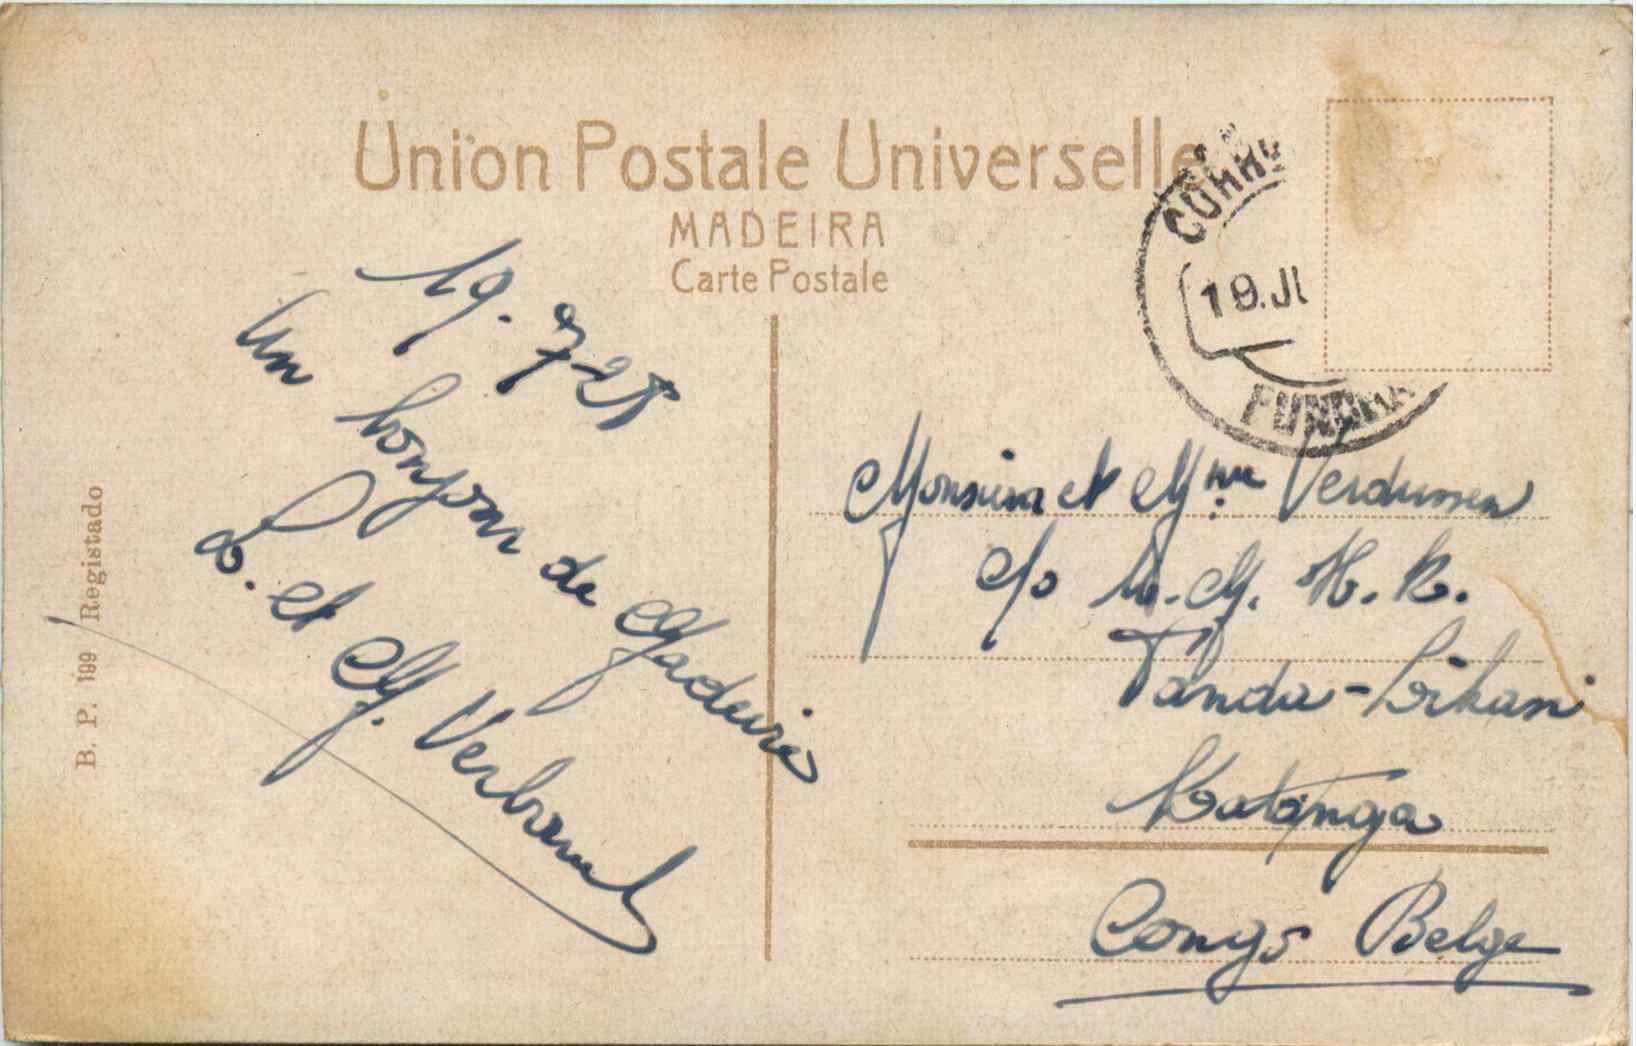 Union Postale Universelle
MADEIRA
Carte Postale
CORRE
19.JU
FUNCHA
B. P. 199 Registado
19-7-28
Un bonjour de Madeira
L. et M. Verbaunt
Monsieur et Mme Verdussen
c/o U. M. H. K.
Panda-Likasi
Katanga
Congo Belge